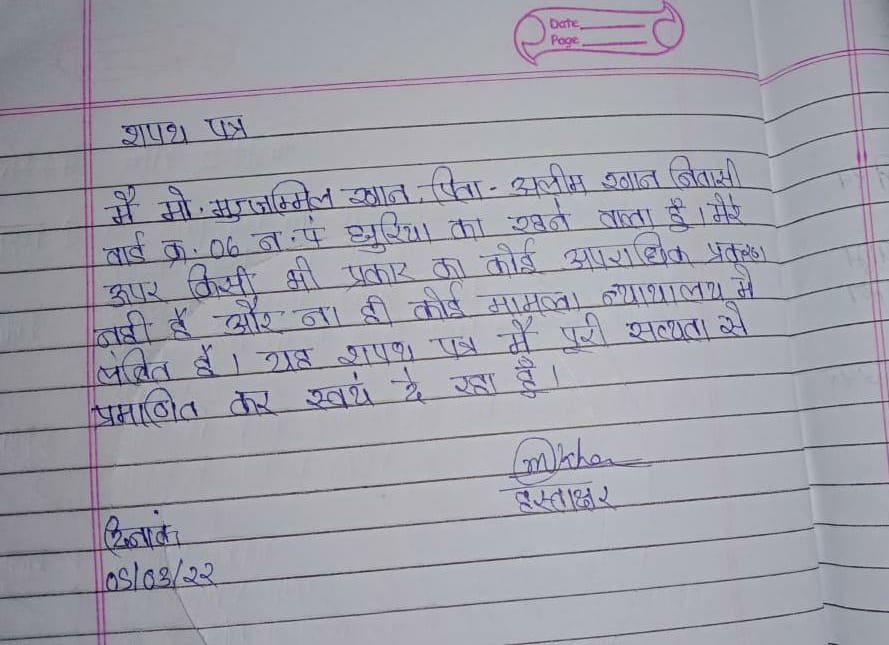 Date
Page
शपथ पत्र
मैं मो. मुजम्मिल खान, पिता - अलीम खान निवासी
वार्ड क्र. 06 न.पं छुरिया का रहने वाला हूँ। मेरे
ऊपर किसी भी प्रकार का कोई अपराधिक प्रकरण
नही है और ना ही कोई मामला न्यायालय में
लंबित है। यह शपथ पत्र मैं पूरी सत्यता से
प्रमाणित कर स्वयं दे रहा हूँ।
MKhan
हस्ताक्षर
दिनांक
05/03/22